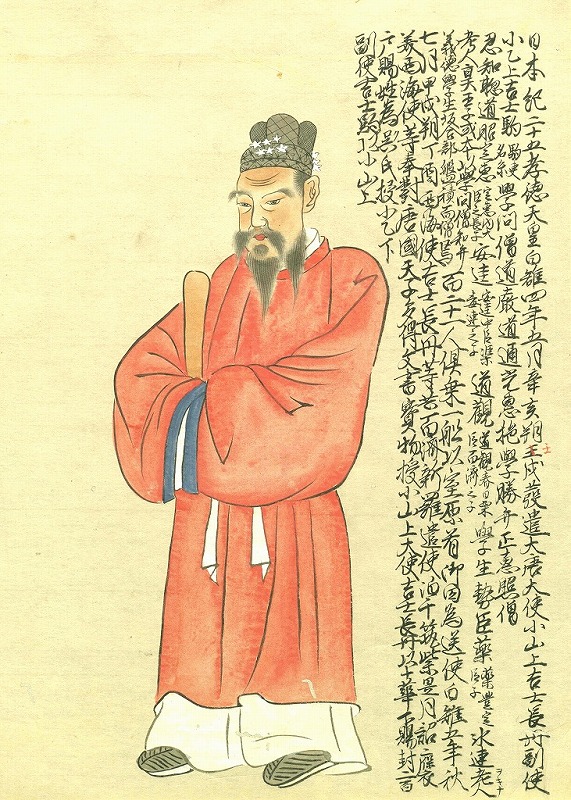 日本紀二十五孝德天皇白雉四年五月辛亥朔壬戌發遣大唐大使小山上吉士長丹副使
小乙上吉士駒駒更名糸學問僧道嚴道通道光惠施學勝弁正惠照僧
忍知聡道昭定惠定惠内大臣之長子安達安達中臣渠安達之子道觀道觀春日粟臣百濟之子學生勢臣藥藥豊足臣子氷連老人ヲキナ
老人真玉子或本學問僧知弁
義德學生坂合部磐積而增焉百二十人俱乗一船以室原首御田為送使白雉五年秋
七月甲戌朔丁酉西海使吉士長丹等共百濟新羅遣使泊于筑紫是月詔褒
美西海使等奉對唐國天子多得文書寶物授小山上大使吉士長丹以小華下賜封二百
戸賜姓為呉氏授小乙下
副使吉士駒以小山上